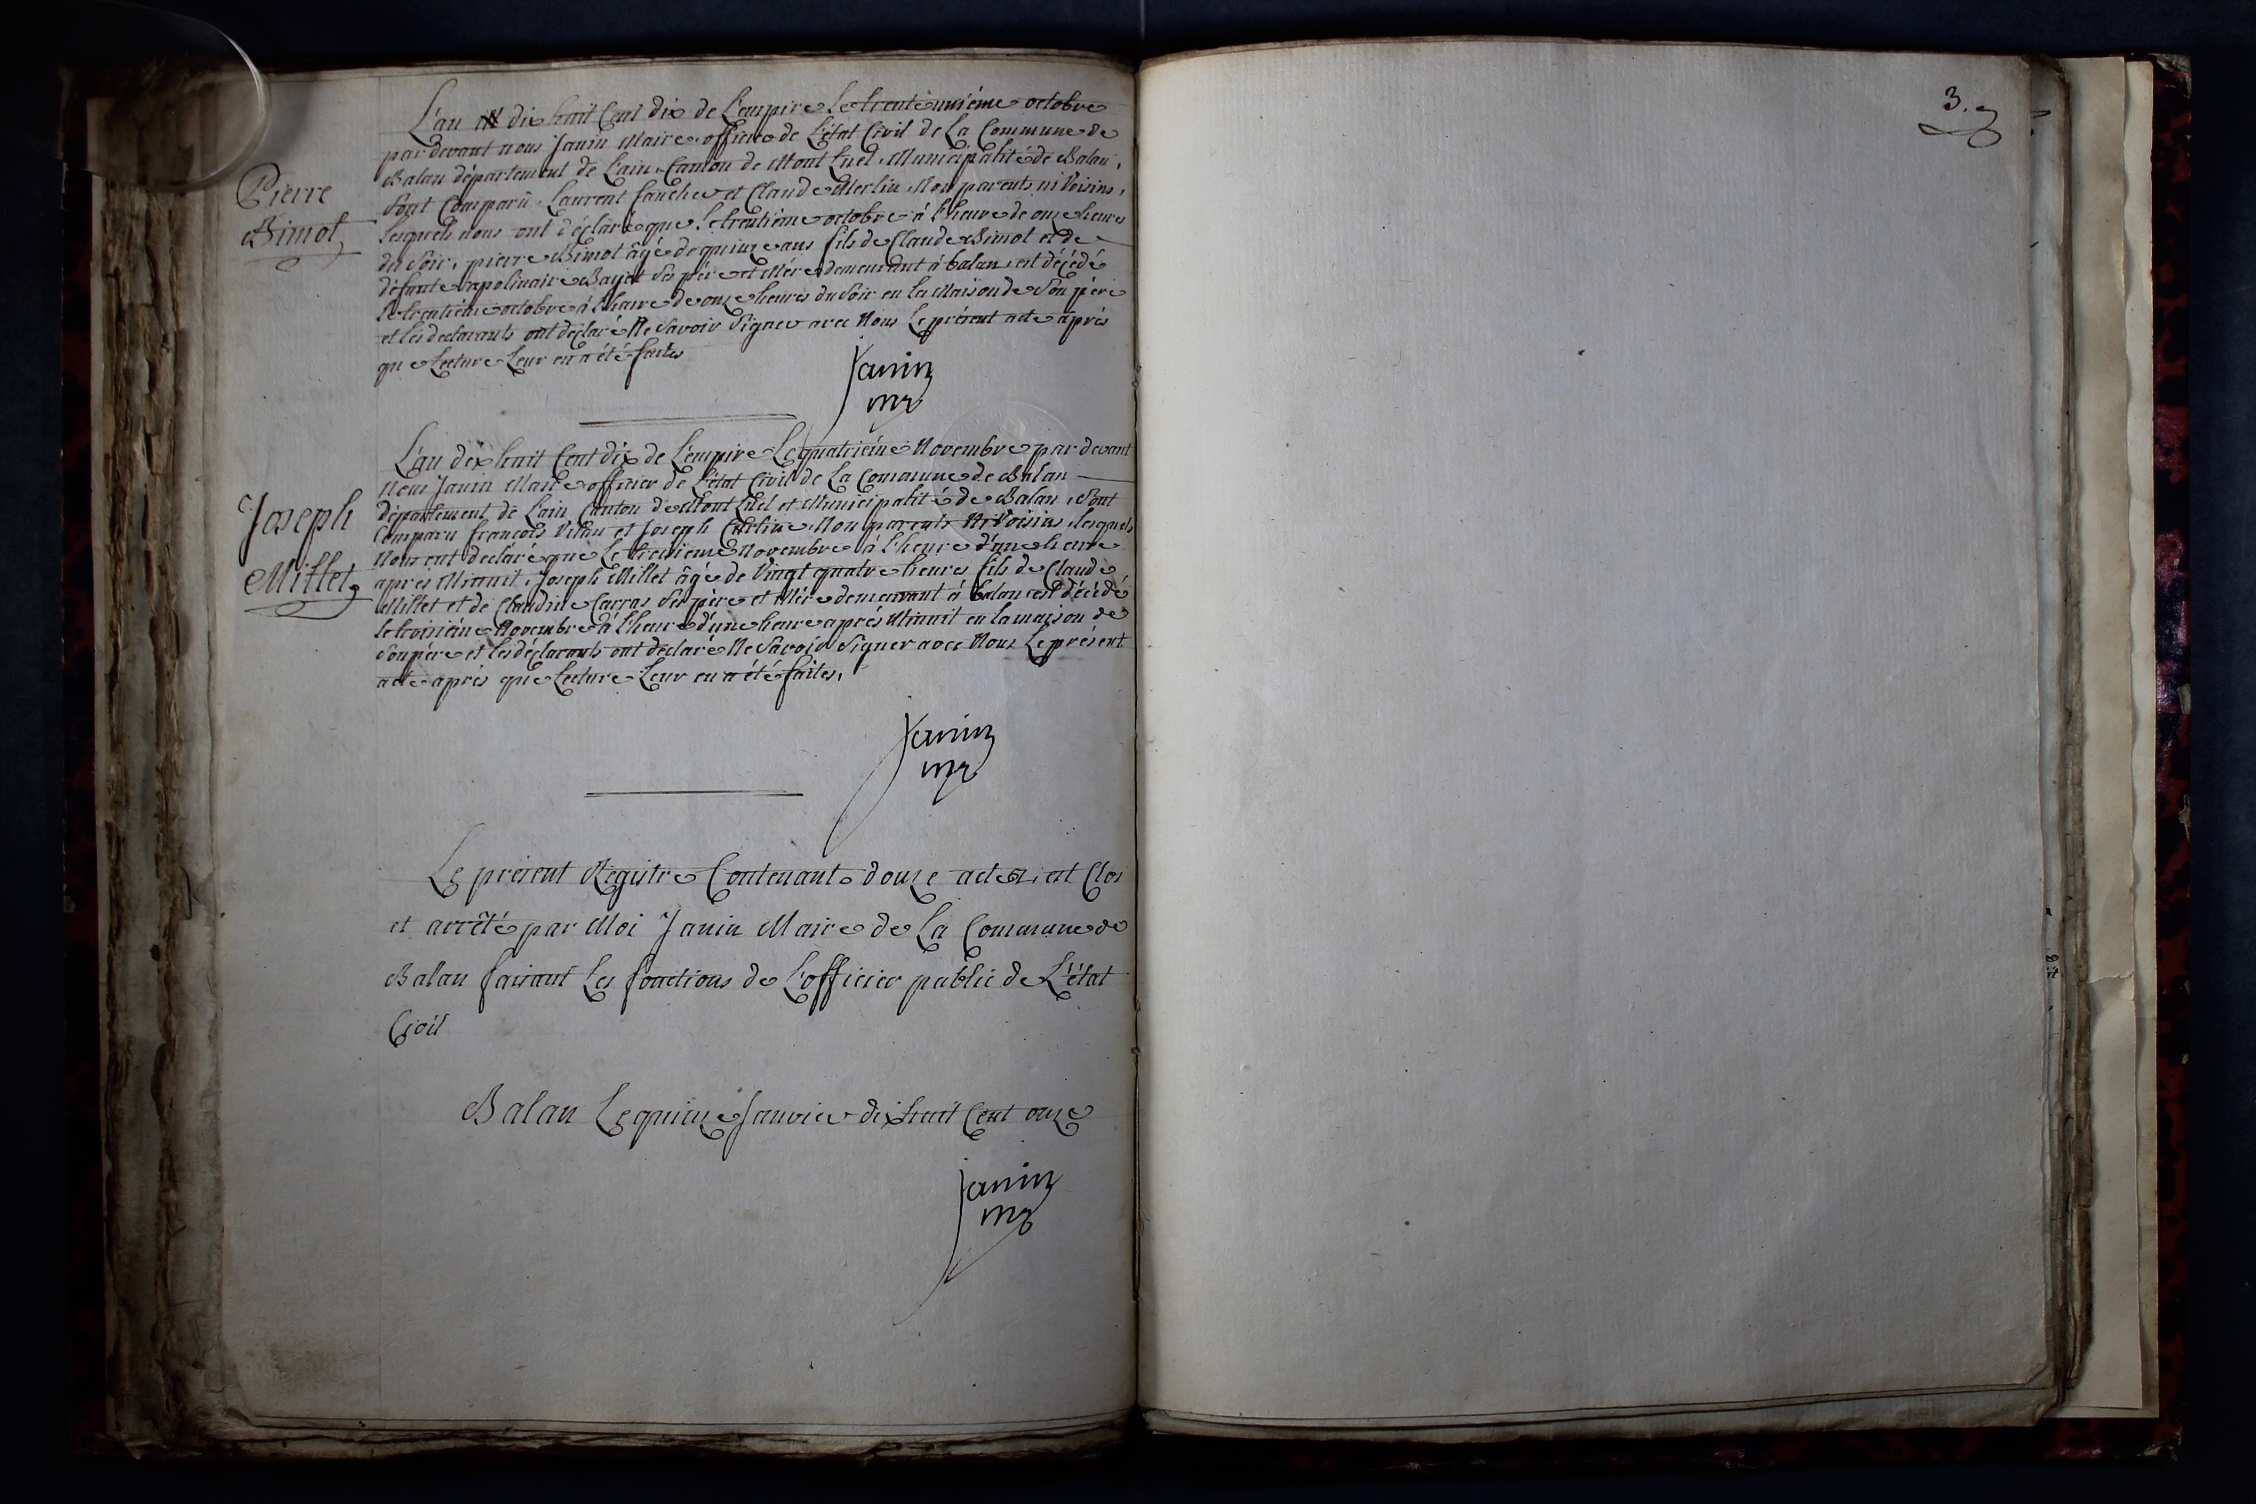 Pierre
Bimot
L'an dix huit Cent dix de L'empire le trente unième octobre
pardevant nous Janin Maire officier de L'état Civil de La Commune de
Balan département de L'ain, Canton de Mont Luel, Municipalité de Balan,
Sont Comparû, Laurent fauche et Claude Merlin Non parents ni Voisins,
lesquels nous ont déclaré que le trentième octobre à l'heure de onze heures
du Soir, pierre Bimot âgé de quinze ans fils de Claude Bimot et de
défunte apolinaire Bayet Ses père et Mére demeurant á balan, est décédé
le trentième octobre à l'heure de onze heures du Soir en la Maison de Son père
et les declarants ont déclaré Ne Savoir Signer avec Nous Le présent acte après
que Lecture Leur en a été faites
Janin
mr
Joseph
Millet
L'an dix huit Cent dix de L'empire Le quatrième Novembre par devant
Nous Janin Maire officier de L'état Civil de La Commune de Balan
département de L'ain Canton de Mont Luel et Municipalité de Balan, Sont
Comparu francois et Joseph Non parents Ni Voisins, lesquels
Nous ont declaré que Le troisieme Novembre à l'heure d'une heure
apres Minuit, Joseph Millet âgé de Vingt quatre heures fils de Claude
Millet et de Claudine Carras Ses père et Mére demeurant á balan est décédé
le troisième Novembre à l'heure d'une heure après Minuit en la maison de
Son père et les déclarants ont déclaré Ne Savoir Signer avec Nous Le présent
acte après que Lecture Leur en a été faites,
Janin
mr
Le présent Régistre Contenant douze actes, est Clos
et arrêté par Moi Janin Maire de La Commune de
Balan faisant Les fonctions de L'officier public de L'état
Civil
Balan Le quinze Janvier dix huit Cent onze
Janin
mr
3.